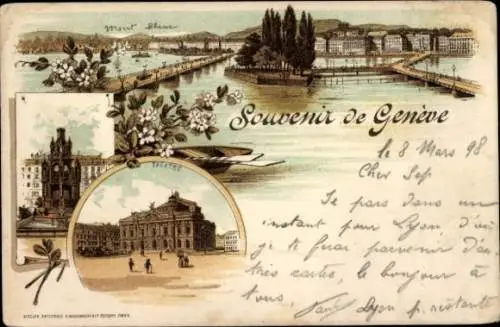 Mont Blanc
Souvenir de Genève
le 8 Mars 98
Cher
Je pars dans un
instant pour Lyon d'où
je te ferai parvenir d'au
tres cartes, le bonjour à
tous,
Lyon p. restante
THÉATRE